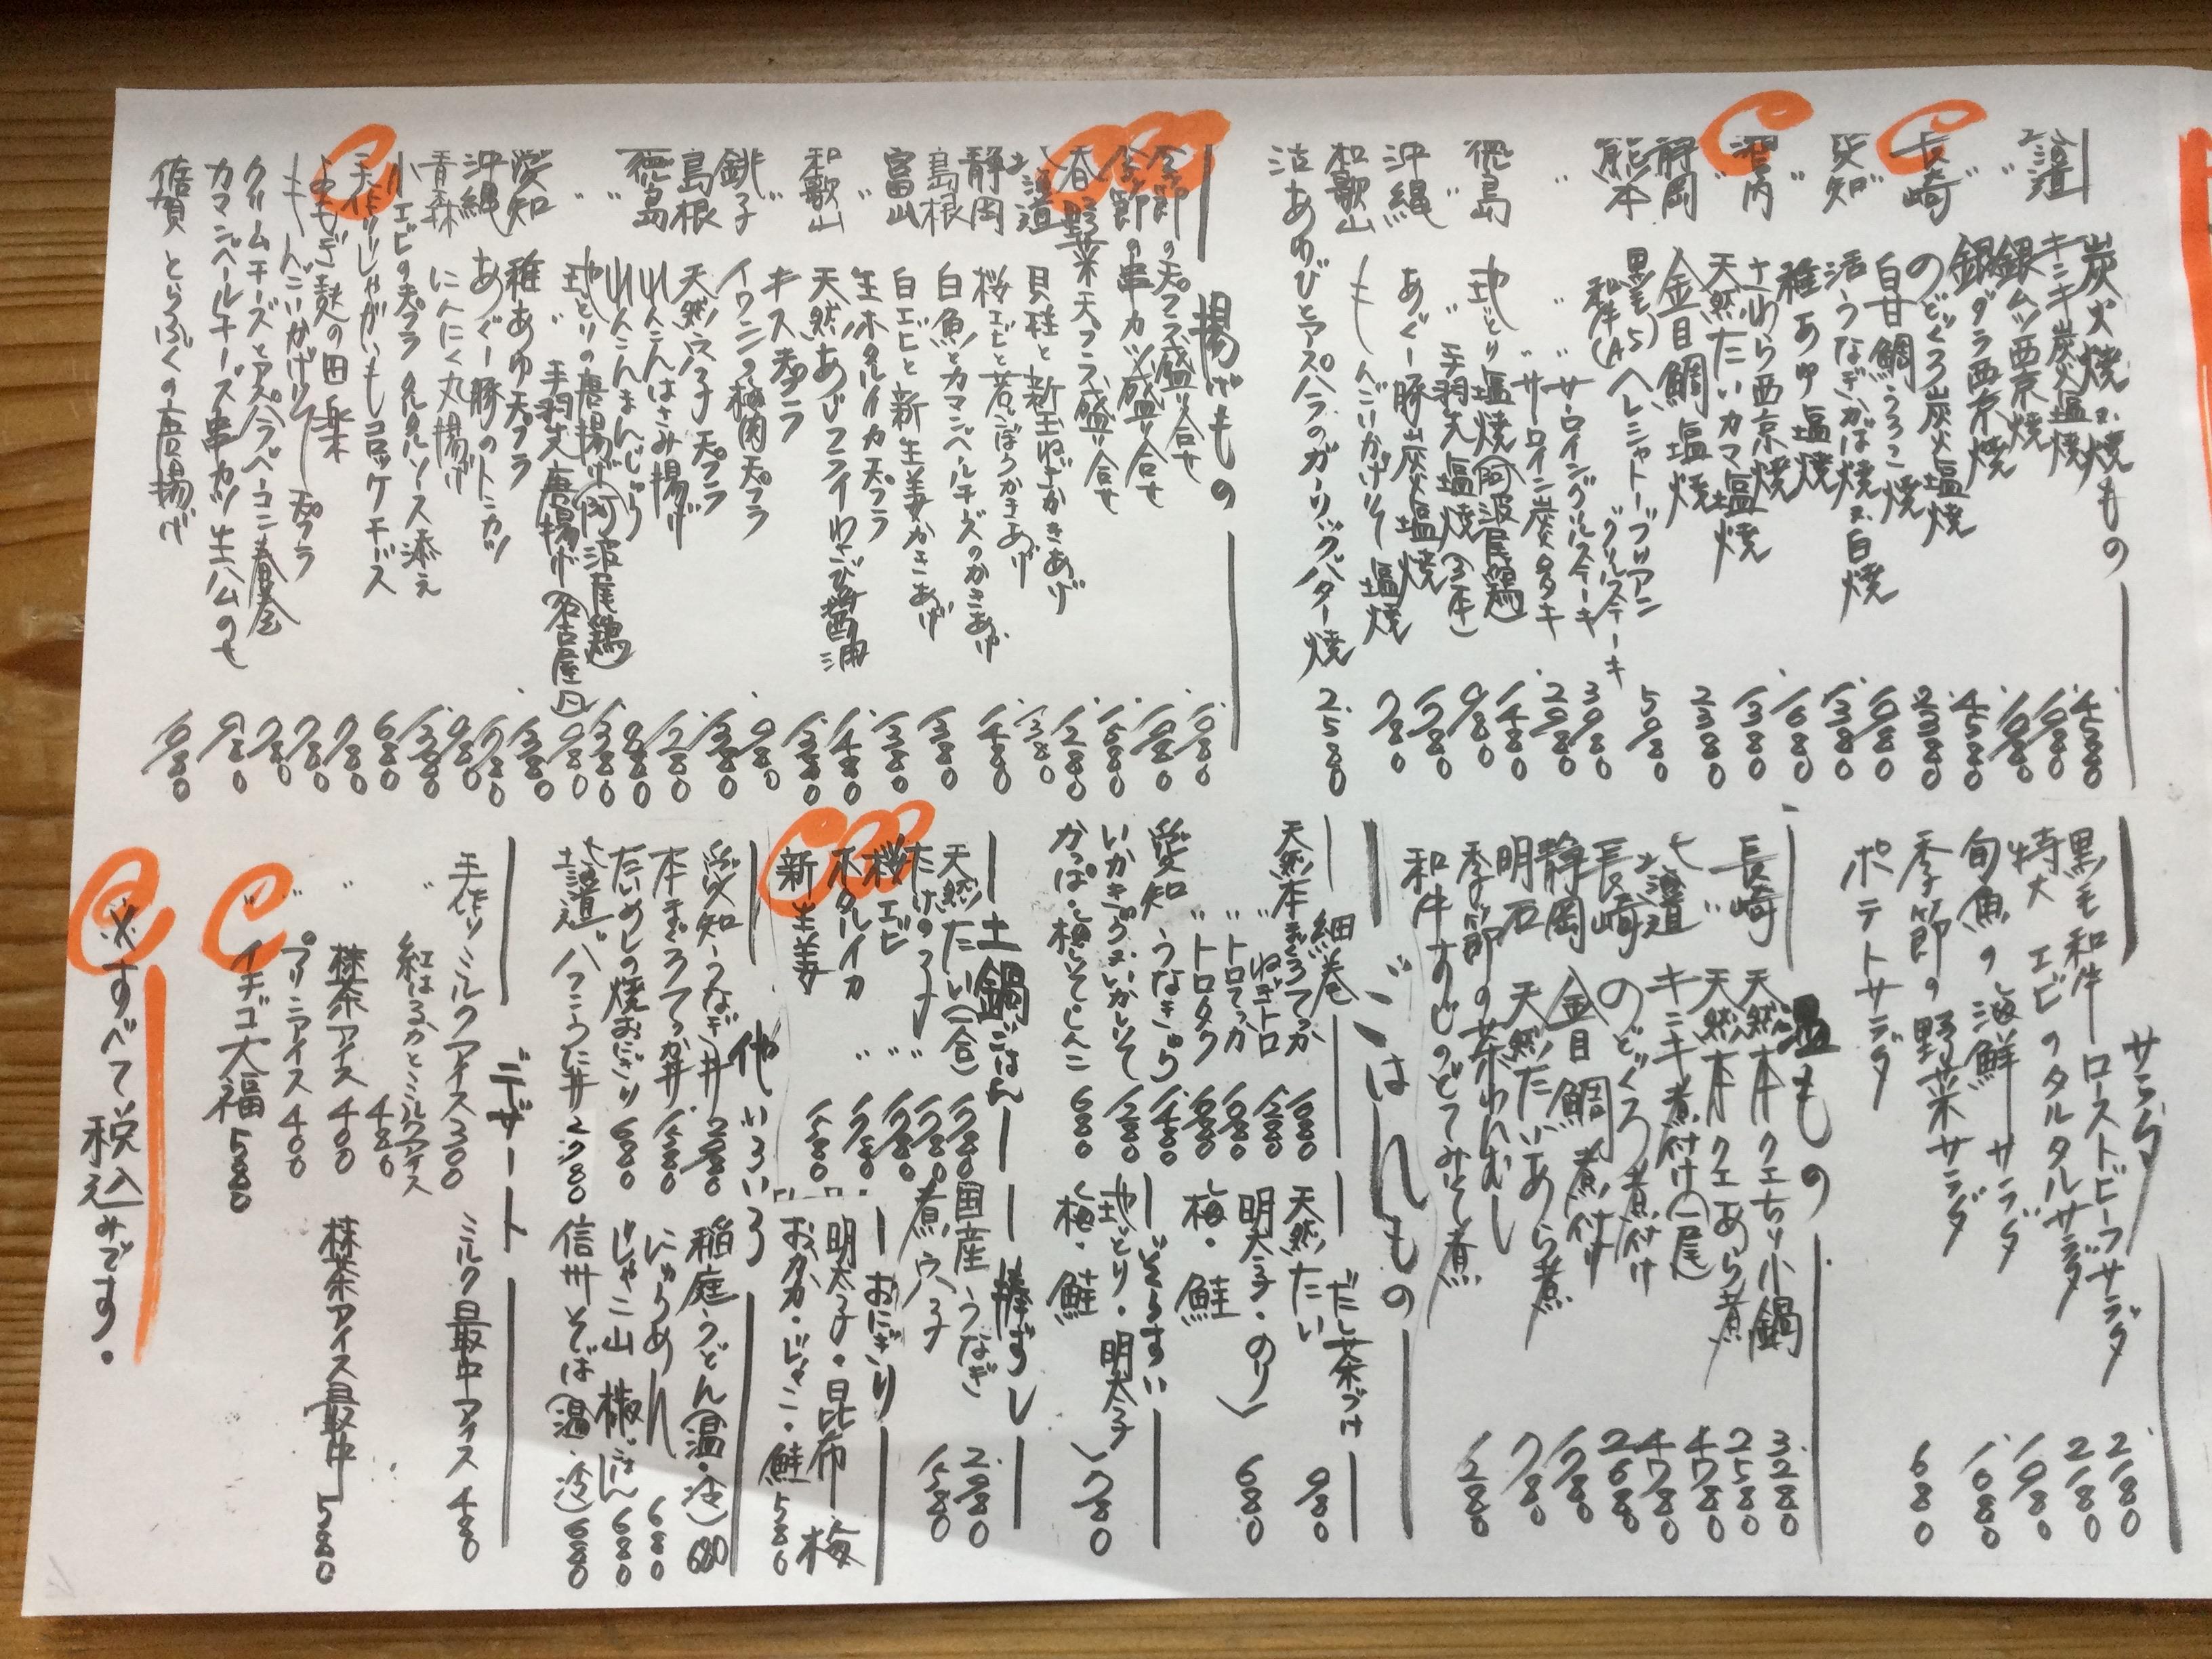 炭火焼き・焼きもの
北海道 キンキ炭火塩焼 4.580
〃 銀ムツ西京焼 1.680
〃 銀ダラ西京焼 1.680
長崎 のどぐろ炭火塩焼 4.580
〃 白甘鯛うろこ焼 2380
愛知 活うなぎかば焼き・白焼
〃 稚あゆ塩焼 1.380
さわら西京焼 1.680
天然たいカマ塩焼 1.380
静岡 金目鯛塩焼 2380
熊本 黒毛和牛(A5)ヘレシャトーブリアン
〃グリルステーキ 5.980
〃 〃サーロイングルステーキ 3980
〃サーロイン炭タタキ 2.980
徳島 地どり塩焼(阿波尾鶏) 1.480
〃 〃手羽先塩焼(3本) 980
沖縄 あぐー豚炭火塩焼 1.780
和歌山 もんごいかげそ塩焼 780
活あわびとアスパラのガーリックバター焼 2.580
揚げもの
季節の天プラ盛り合せ
季節の串カツ盛り合せ
春野菜天プラ盛り合せ
北海道 貝柱と新玉ねぎかきあげ
静岡 桜エビと若ごぼうかきあげ
島根 白魚とカマンベールチーズのかきあげ
富山 白エビと新生姜かきあげ
〃 生ホタルイカ天プラ
和歌山 天然あじフライわさび醤油
〃 キス天プラ
銚子 イワシの梅肉天プラ
島根 天然穴子天プラ
れんこんはさみ揚げ
れんこんまんじゅう
徳島 地どりの唐揚げ(阿波尾鶏)
〃 〃手羽先唐揚げ(名古屋風)
愛知 稚あゆ天プラ
沖縄 あぐー豚のトンカツ
青森 にんにく丸揚げ
小エビの天プラ タルタルソース添え
手作りじゃがいもコロッケチーズ
よもぎ麩の田楽
もんごいかげそ天プラ
クリームチーズとアスパラベーコン春巻 780
カマンベールチーズ串カツ 生ハムのせ 980
佐賀 とらふぐの唐揚げ 1.680
サラダ
黒毛和牛ローストビーフサラダ 2.180
特大エビのタルタルサラダ 2.180
旬魚の海鮮サラダ 1.980
季節の野菜サラダ 1.080
ポテトサラダ 680
温もの
長崎 天然本クエちり小鍋 3.280
〃 天然本クエあら煮 2580
北海道 キンキ煮付け(一尾) 4.780
長崎 のどぐろ煮付け 4.780
静岡 金目鯛煮付け 2680
明石 天然たいあら煮 1.780
季節の茶わんむし 780
和牛すじのどてみそ煮 1.280
ごはんもの
細巻
天然本まぐろてっか 1.680
〃ねぎトロ 1.280
〃トロてっか 1.680
〃トロタク 1.680
愛知 うなきゅう 1.480
いかきゅう・いかしそ 1.280
かっぱ・梅しそ・しんこ 680
だし茶づけ
天然たい 980
明太子・のり
梅・鮭 680
ぞうすい
地どり・明太子
梅・鮭 780
土鍋ごはん
天然たい(一合) 1.780
たけのこ 〃 1.780
桜エビ 〃 1.980
ホタルイカ 〃 1.780
新生姜 1.580
棒ずし
国産うなぎ 2.980
煮穴子 1.580
おにぎり
明太子・昆布・梅
おかか・じゃこ・鮭 580
他いろいろ
愛知 うなぎ丼 2.980
本まぐろてっか丼 1.580
たいめしの焼おにぎり 680
北海道 バフンうに丼 2.980
稲庭うどん(温・冷) 680
にゅうめん 680
じゃこ山椒ごはん 680
信州そば(温・冷) 680
デザート
手作りミルクアイス 300
〃 紅はるかとミルクアイス 480
〃 抹茶アイス 400
〃 プリンアイス 400
〃 イチゴ大福 580
ミルク最中アイス 480
抹茶アイス最中 580
※すべて税込みです。